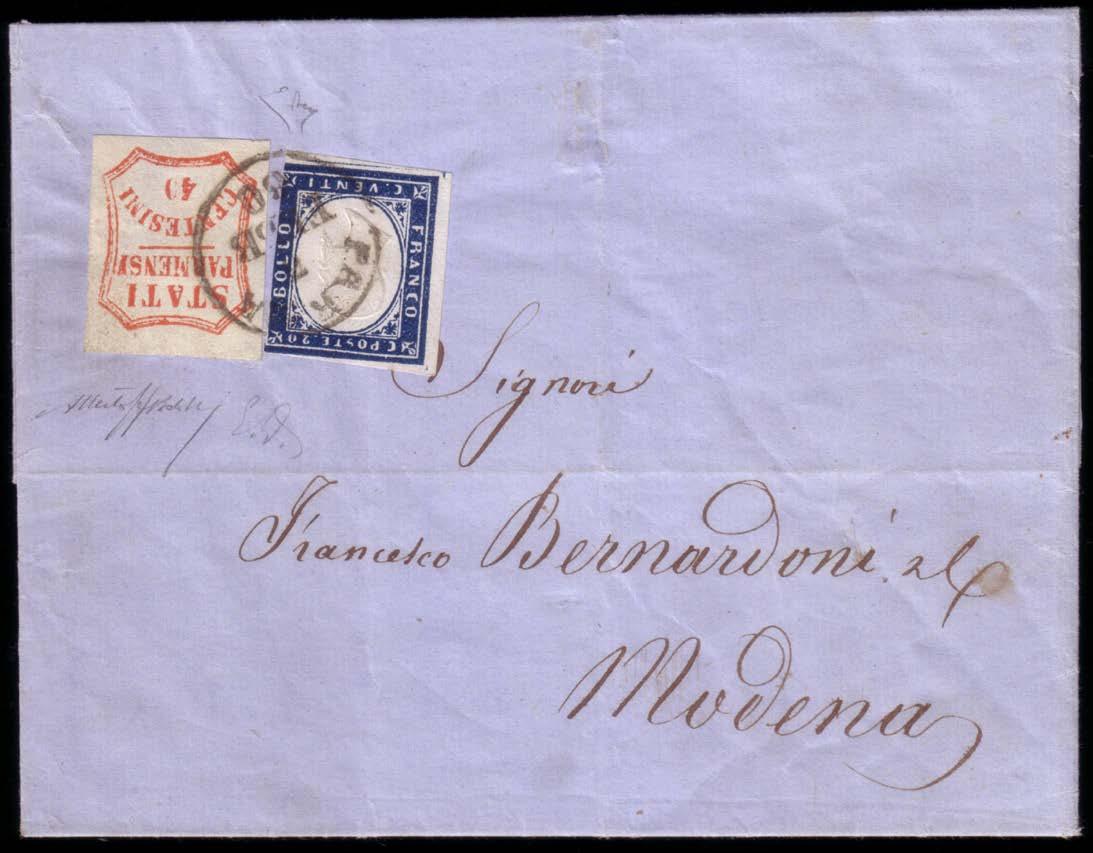 STATI
PARMENSI
CENTESINI
40
C. POSTE. 20
BOLLO
FRANCO
C. VENTI
PAR
60
Signori
Francesco Bernardoni
Modena
E.D.